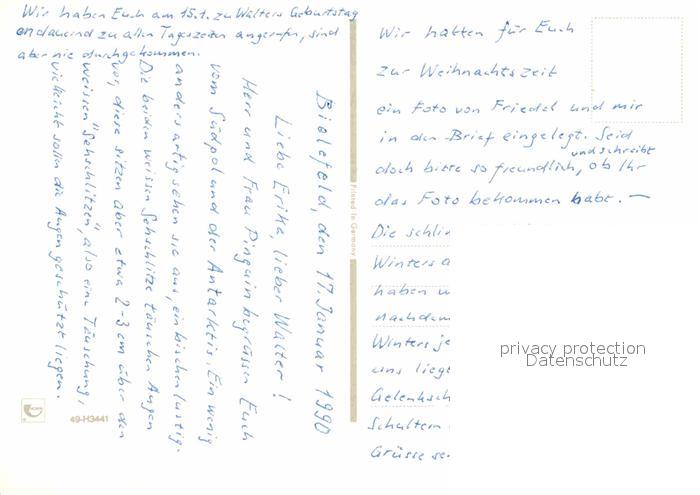 Wir haben Euch am 15.1. zu Walters Geburtstag
andauernd zu allen Tageszeiten angerufen, sind
aber nie durchgekommen.
Bielefeld, den 17. Januar 1990
Liebe Erika, lieber Walter!
Herr und Frau Pinguin begrüssen Euch
vom Südpol und der Antarktis. Ein wenig
andersartig sehen sie aus, ein bischen lustig.
Die beiden weissen Sehschlitze täuschen Augen
vor, diese sitzen aber etwa 2-3 cm über den
weissen "Sehschlitzen", also eine Täuschung,
vielleicht sollen die Augen geschützt liegen.
Printed in Germany
49-H3441
Wir hatten für Euch
zur Weihnachtszeit
ein Foto von Friedel und mir
in den Brief eingelegt. Seid
und schreibt
doch bitte so freundlich, ob Ihr
das Foto bekommen habt. —
Die schlin
Winters a
haben u
nachdem
Winters je
uns liegt
Gelenksch
Schultern
Grüsse se
privacy protection
Datenschutz